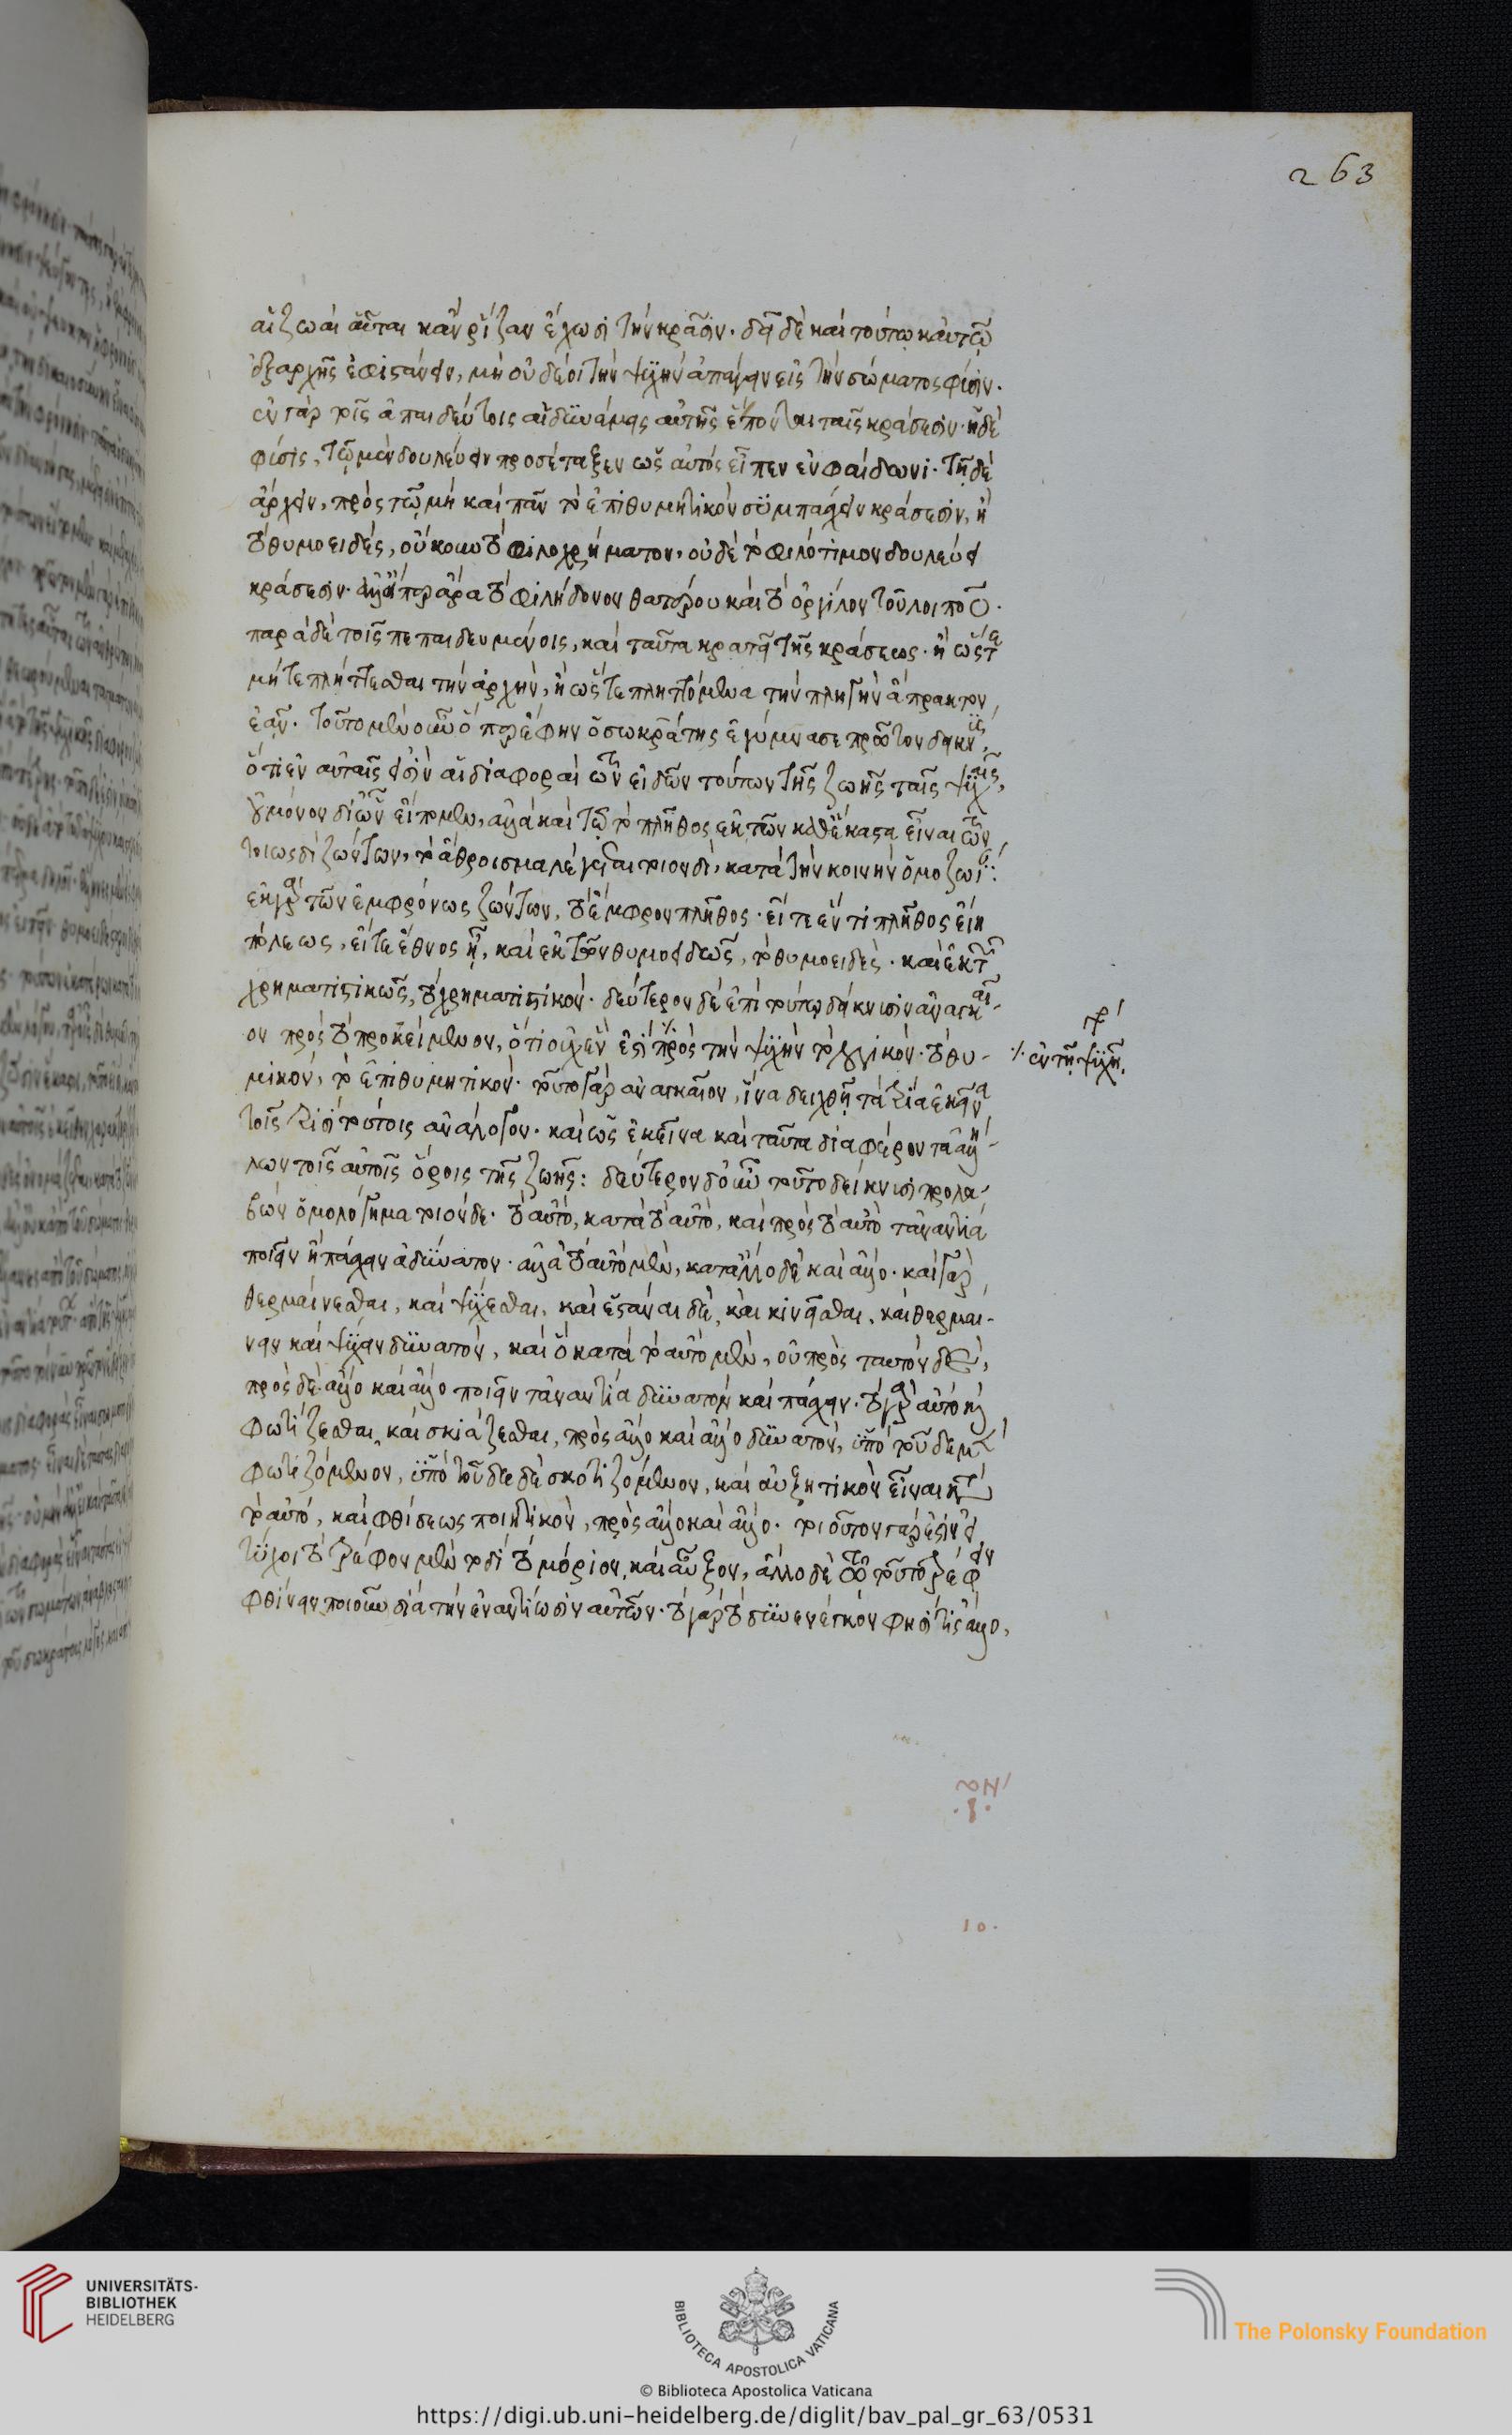 263
αἱ ζωαὶ αὗται κἂν ῥίζαν ἔχωσι τὴν κρᾶσιν. δεῖ δὲ καὶ τούτω κἀυτῶ
ἐξαρχῆς ἐφιστάνειν, μὴ οὐ δέοι τὴν ψυχὴν ἀπάγειν εἰς τὴν σώματος φύσιν.
ἐν γὰρ τοῖς ἀπαιδεύτοις αἱ δυνάμεις αὐτῆς ἕπονται ταῖς κράσεσιν. ἡ δὲ
φύσις, τῶ μὲν δουλεύειν προσέταξεν ὡς αὐτὸς εἶπεν ἐν φαίδωνι. τῆ δὲ
ἄρχειν, πρὸς τῶ μὴ καὶ πᾶν τὸ ἐπιθυμητικὸν συμπάσχειν κράσεσιν, ἢ
τὸ θυμοειδές, οὔκουν τὸ φιλοχρήματον, οὐδὲ τὸ φιλότιμον δουλεύει
κράσεσιν. ἀλλ' εἴπερ ἄρα τὸ φιλήδονον θατέρου καὶ τὸ ὀργίλον τοῦ λοιποῦ.
παρὰ δὲ τοῖς πεπαιδευμένοις, καὶ ταῦτα κρατεῖ τῆς κράσεως. ἢ ὥστε
μήτε πλήττεσθαι τὴν ἀρχὴν, ἢ ὥστε πληττόμενα τὴν πληγὴν ἄπρακτον
ἐᾶν. τοῦτο μὲν οὖν ὅπερ ἔφην ὁ σωκράτης ἐγύμνασε πρῶτον δεικνὺς,
ὅτι ἐν αὐταῖς εἰσὶν αἱ διαφοραὶ τῶν εἰδῶν τούτων τῆς ζωῆς ταῖς ψυχαῖς,
οὐ μόνον δι ὧν εἴπομεν, ἀλλὰ καὶ τῶ τὸ πλῆθος ἐκ τῶν καθέκαστα εἶναι τῶν
τοιωσδὶ ζώντων, τὸ ἄθροισμα λέγεται τοιονδὶ, κατὰ τὴν κοινὴν ὁμοζωί
ἐκ γὰρ τῶν ἐμφρόνως ζώντων, τὸ ἔμφρον πλῆθος. εἴτε ἕν τι πλῆθος εἴη
πόλεως, εἴτε ἔθνος ἦ, καὶ ἐκ τῶν θυμοειδῶς, τὸ θυμοειδές. καὶ ἐκ τῶν
χρηματιστικῶς, τὸ χρηματιστικόν. δεύτερον δὲ ἐπὶ τούτω δείκνυσιν ἀναγκαῖ-
ον πρὸς τὸ προκείμενον, ὅτι οὐχ ἕν ἐστι ⁒ πρὸς τὴν ψυχὴν τὸ λογικὸν. τὸ θυ-
μικὸν, τὸ ἐπιθυμητικὸν. τοῦτο γὰρ ἀναγκαῖον, ἵνα δειχθῆ τὰ τρία ἐκεῖνα
τοῖς τρισὶ τούτοις ἀνάλογον. καὶ ὡς ἐκεῖνα καὶ ταῦτα διαφέροντα ἀλλή-
λων τοῖς αὐτοῖς ὅροις τῆς ζωῆς: δεύτερον δ' οὖν τοῦτο δείκνυσι προλα-
βὼν ὁμολόγημα τοιόνδε. τὸ αὐτὸ, κατὰ τὸ αὐτὸ, καὶ πρὸς τὸ αὐτὸ τἀναντία
ποιεῖν ἢ πάσχειν ἀδύνατον. ἀλλὰ τὸ αὐτὸ μὲν, κατ' ἄλλο δὲ καὶ ἄλλο. καὶ γὰρ
θερμαίνεσθαι, καὶ ψύχεσθαι, καὶ ἑστάναι δὲ, καὶ κινεῖσθαι, καὶ θερμαί-
νειν καὶ ψύχειν δυνατὸν, καὶ ὃ κατὰ τὸ αὐτὸ μὲν, οὐ πρὸς ταυτὸν δὲ,
πρὸς δὲ ἄλλο καὶ ἄλλο ποιεῖν τἀναντία δυνατὸν καὶ πάσχειν. τὸ γὰρ αὐτὸ καὶ
φωτίζεσθαι, καὶ σκιάζεσθαι, πρὸς ἄλλο καὶ ἄλλο δυνατὸν, ὑπὸ τοῦδε μὲν
φωτιζόμενον, ὑπὸ τοῦδε δὲ σκοτιζόμενον, καὶ αὐξητικὸν εἶναι
τὸ αὐτὸ, καὶ φθίσεως ποιητικὸν, πρὸς ἄλλο καὶ ἄλλο. τοιοῦτον γάρ ἐστιν εἰ
τύχοι τὸ τρέφον μὲν τοδὶ τὸ μόριον, καὶ αὖξον, ἄλλο δὲ τῶ τοῦτο τρέφειν
φθίνειν ποιοῦν διὰ τὴν ἐναντίωσιν αὐτῶν. τὸ γάρ τὸ συνενεγκὸν φησί τις ἄλλο,
⁒ ἐν τῆ ψυχῆ.
10.
UNIVERSITÄTS-
BIBLIOTHEK
HEIDELBERG
BIBLIOTECA APOSTOLICA VATICANA
© Biblioteca Apostolica Vaticana
The Polonsky Foundation
https://digi.ub.uni-heidelberg.de/diglit/bav_pal_gr_63/0531